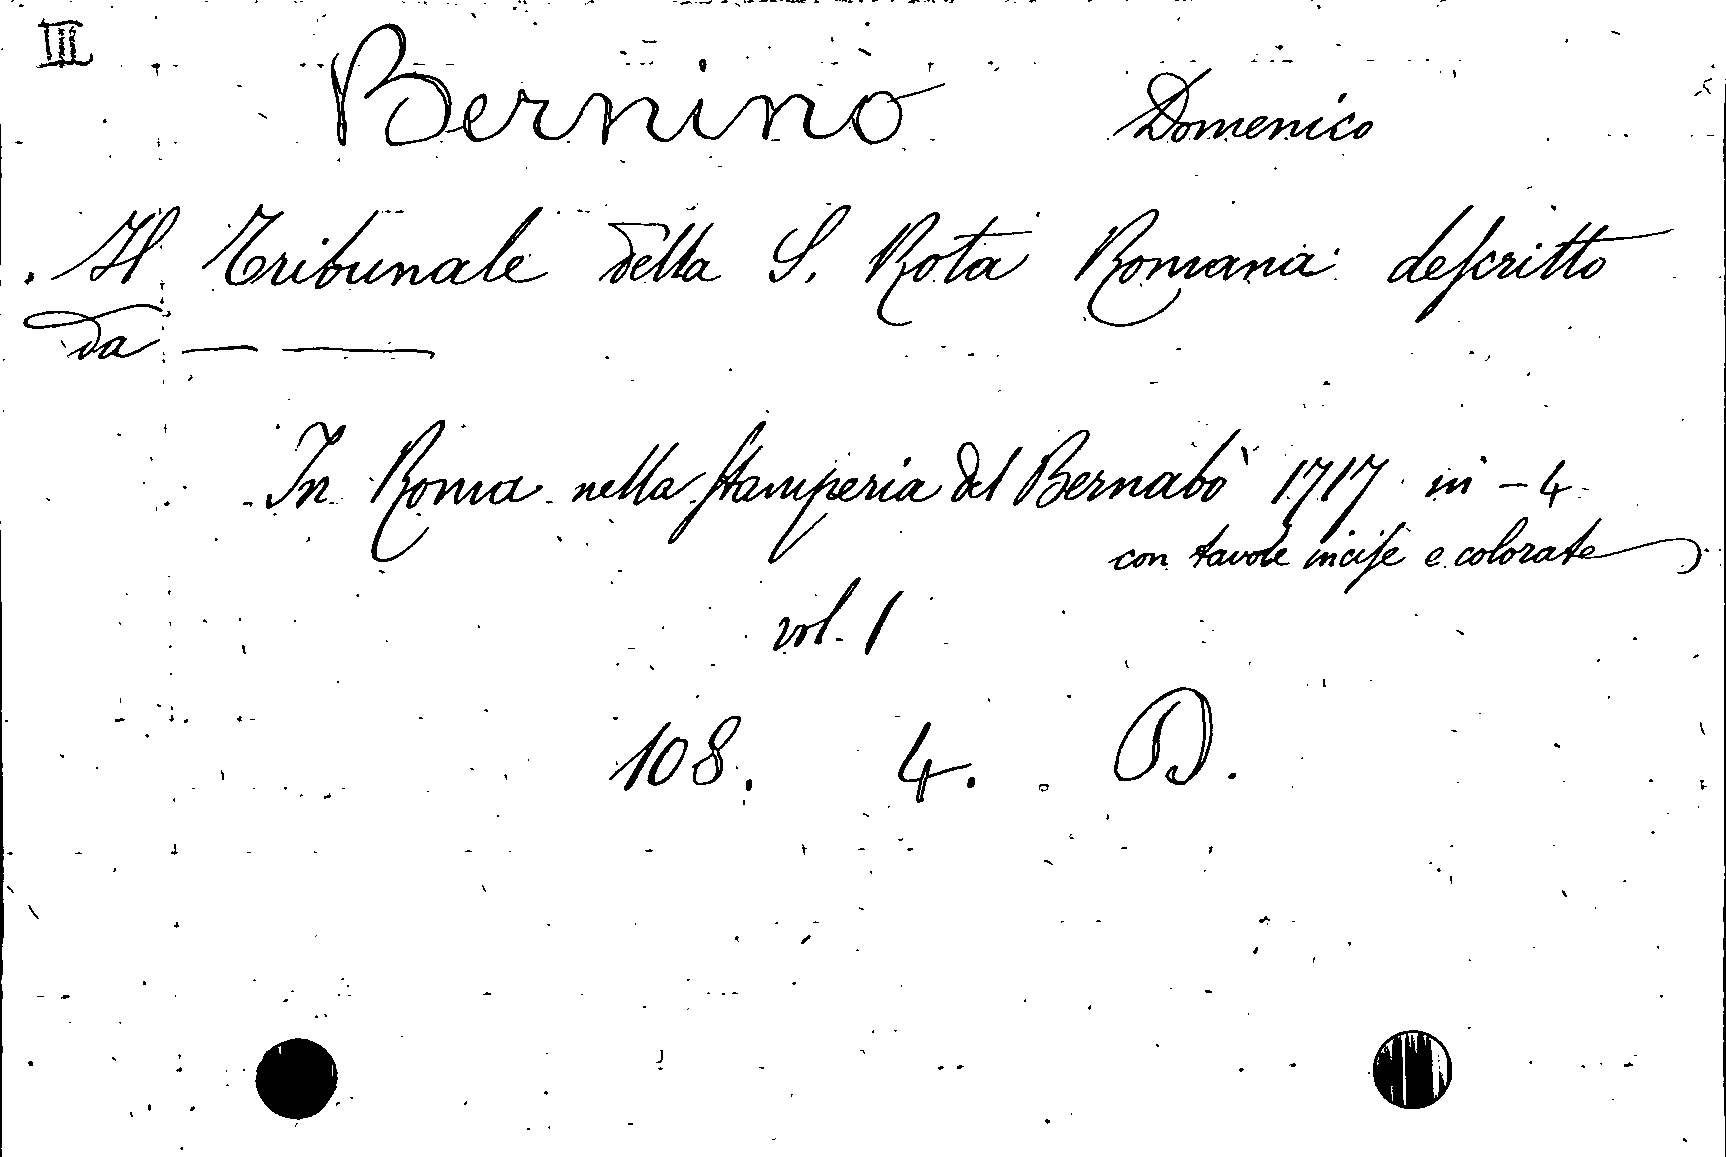 III
Bernino Domenico
Il Tribunale della S. Rota Romana deſcritto
da — ——
In Roma nella ſtamperia del Bernabò 1717 in - 4
con tavole inciſe e colorate
vol. 1
108. 4. D.